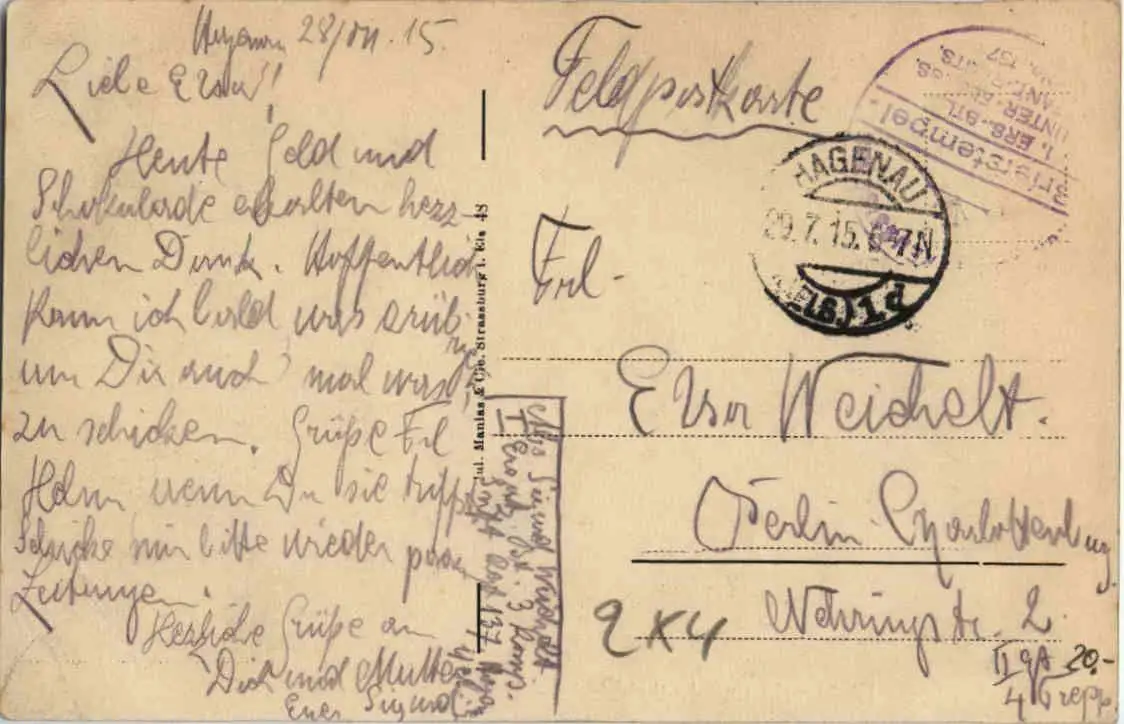 Hagenau 28/VII. 15.
Liebe Elsa!
Heute Geld und
Schokolade erhalten herz-
lichen Dank. Hoffentlich
kann ich bald was erübri-
gen
um Dir auch mal was
zu schicken. Grüße Frl
Hahn wenn Du sie triffst
Schicke mir bitte wieder paar
Zeitungen.
Herzliche Grüße an
Dich und Mutter
Euer Sigmund
Jul. Manias & Cie. Strassburg i. Els. 48
Abs Sigmund Weichelt
I Ersatz Bat. 3 Komp.
Inft Regt 137 Hagenau
Feldpostkarte
Briefstempel.
I. ERS.-BTL.
UNTER-ELSÄSS.
No. 137
HAGENAU
29.7.15. 6-7N
(ELS.) 1 d
Frl.
Elsa Weichelt.
Berlin-Charlottenburg
Nehringstr. 2
II gA 20.-
4 Trepp.
2x4